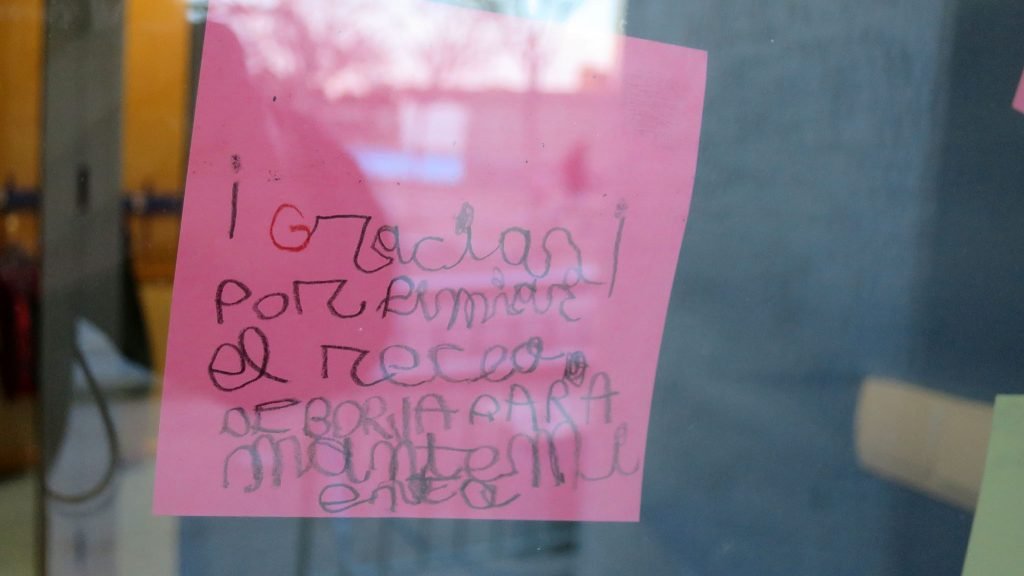 ¡Gracias!
Por limiar
el receo
DE BORJA PARA
mantemi
ento